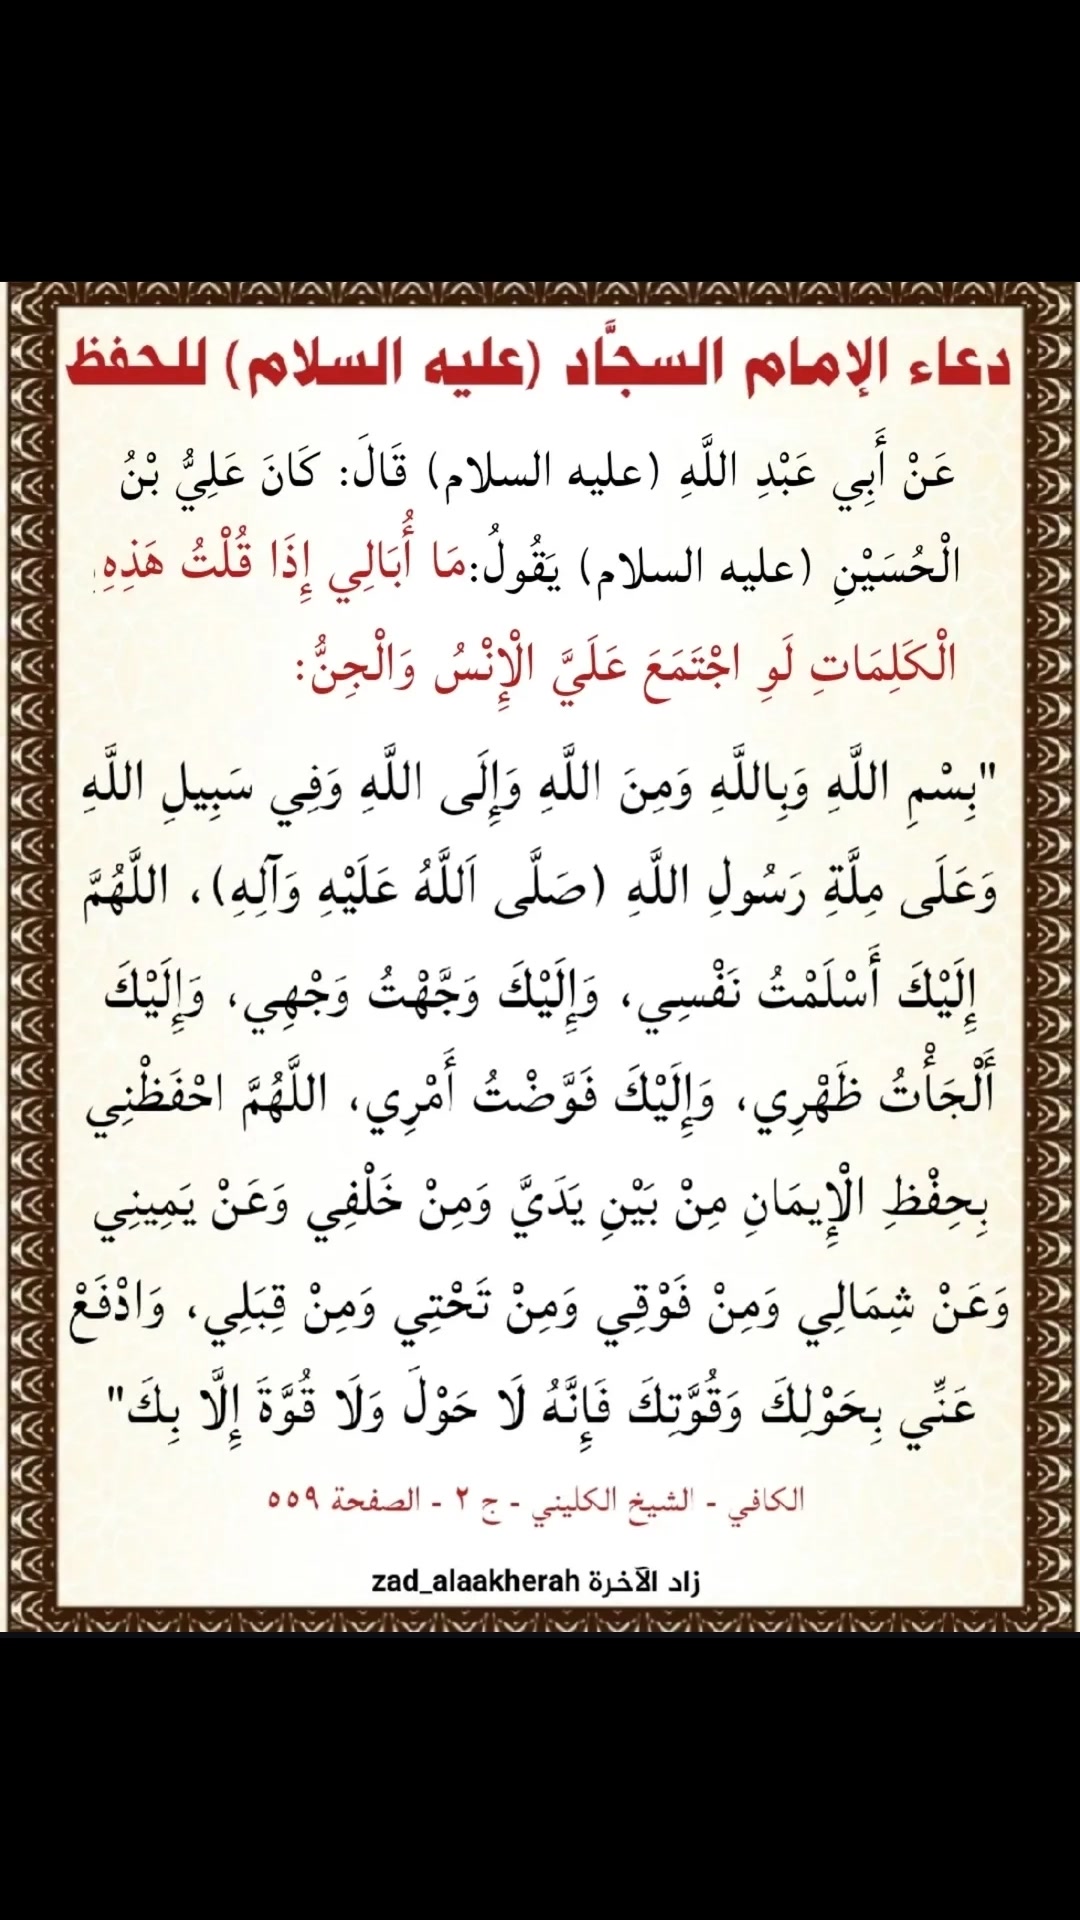 دعاء الإمام السجَّاد (عليه السلام) للحفظ
عَنْ أَبِي عَبْدِ اللَّهِ (عليه السلام) قَالَ: كَانَ عَلِيُّ بْنُ
الْحُسَيْنِ (عليه السلام) يَقُولُ:مَا أُبَالِي إِذَا قُلْتُ هَذِهِ
الْكَلِمَاتِ لَوِ اجْتَمَعَ عَلَيَّ الْإِنْسُ وَالْجِنُّ:
"بِسْمِ اللَّهِ وَبِاللَّهِ وَمِنَ اللَّهِ وَإِلَى اللَّهِ وَفِي سَبِيلِ اللَّهِ
وَعَلَى مِلَّةِ رَسُولِ اللَّهِ (صَلَّى اَللَّهُ عَلَيْهِ وَآلِهِ)، اللَّهُمَّ
إِلَيْكَ أَسْلَمْتُ نَفْسِي، وَإِلَيْكَ وَجَّهْتُ وَجْهِي، وَإِلَيْكَ
أَلْجَأْتُ ظَهْرِي، وَإِلَيْكَ فَوَّضْتُ أَمْرِي، اللَّهُمَّ احْفَظْنِي
بِحِفْظِ الْإِيمَانِ مِنْ بَيْنِ يَدَيَّ وَمِنْ خَلْفِي وَعَنْ يَمِينِي
وَعَنْ شِمَالِي وَمِنْ فَوْقِي وَمِنْ تَحْتِي وَمِنْ قِبَلِي، وَادْفَعْ
عَنِّي بِحَوْلِكَ وَقُوَّتِكَ فَإِنَّهُ لَا حَوْلَ وَلَا قُوَّةَ إِلَّا بِكَ"
الكافي - الشيخ الكليني - ج ٢ - الصفحة ٥٥٩
زاد الآخرة zad_alaakherah